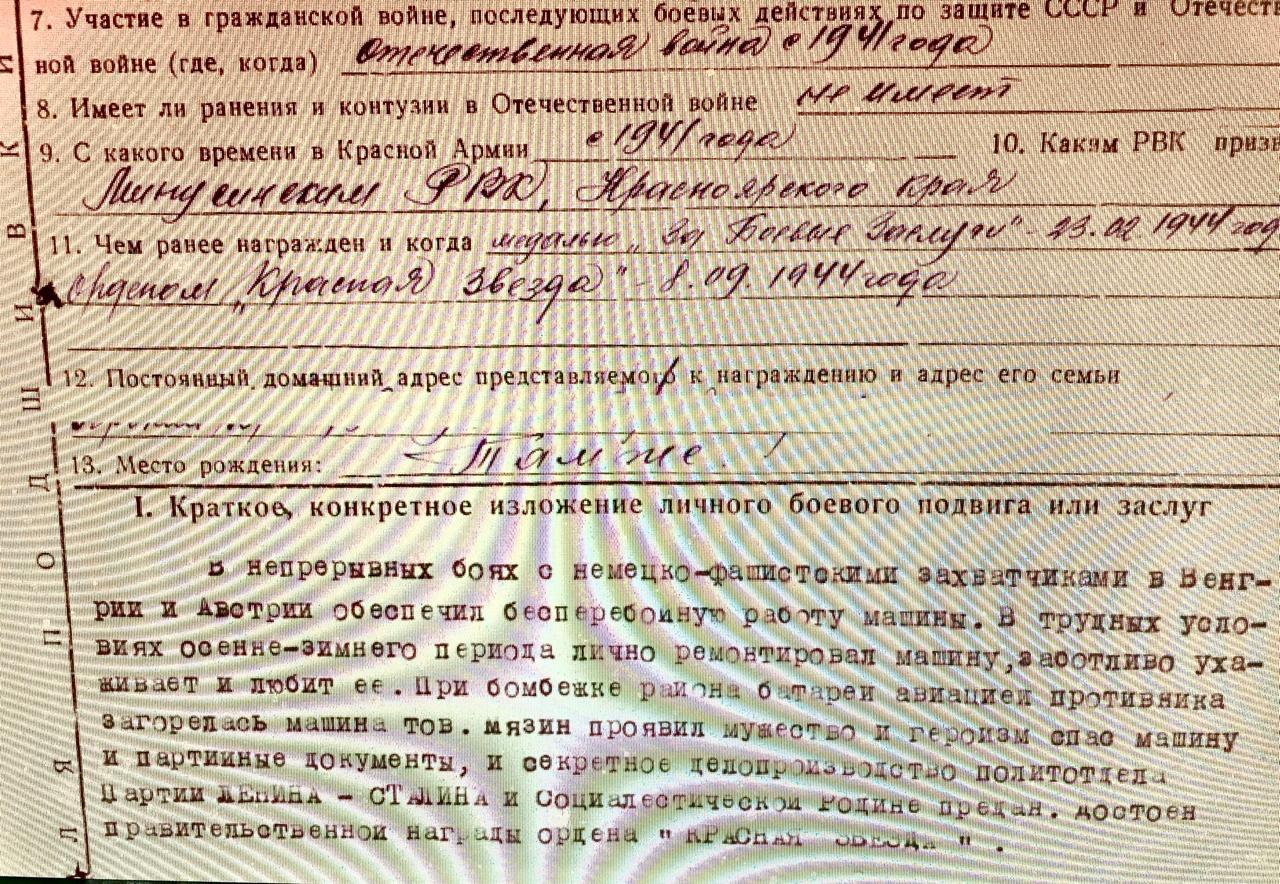 7. Участие в гражданской войне, последующих боевых действиях по защите СССР и Отечеств
ной войне (где, когда) Отечественная война с 1941 года
8. Имеет ли ранения и контузии в Отечественной войне не имеет
9. С какого времени в Красной Армии с 1941 года 10. Каким РВК призв
Минусинским РВК, Красноярского края
11. Чем ранее награжден и когда медалью „За Боевые Заслуги" - 23.02.1944 год
орденом „Красная Звезда" - 8.09.1944 года
12. Постоянный домашний адрес представляемого к награждению и адрес его семьи
13. Место рождения: Там же.
I. Краткое, конкретное изложение личного боевого подвига или заслуг
В непрерывных боях с немецко-фашистскими захватчиками в Венг-
рии и Австрии обеспечил бесперебойную работу машины. В трудных усло-
виях осенне-зимнего периода лично ремонтировал машину, заботливо уха-
живает и любит ее. При бомбежке района батареи авиацией противника
загорелась машина тов. мязин проявил мужество и героизм спас машину
и партийные документы, и секретное делопроизводство политотдела
Партии ЛЕНИНА - СТАЛИНА и Социалестической Родине предан. достоен
правительственной награды ордена " КРАСНАЯ ЗВЕЗДА ".
ПОДШИВКИ
ЛЯ